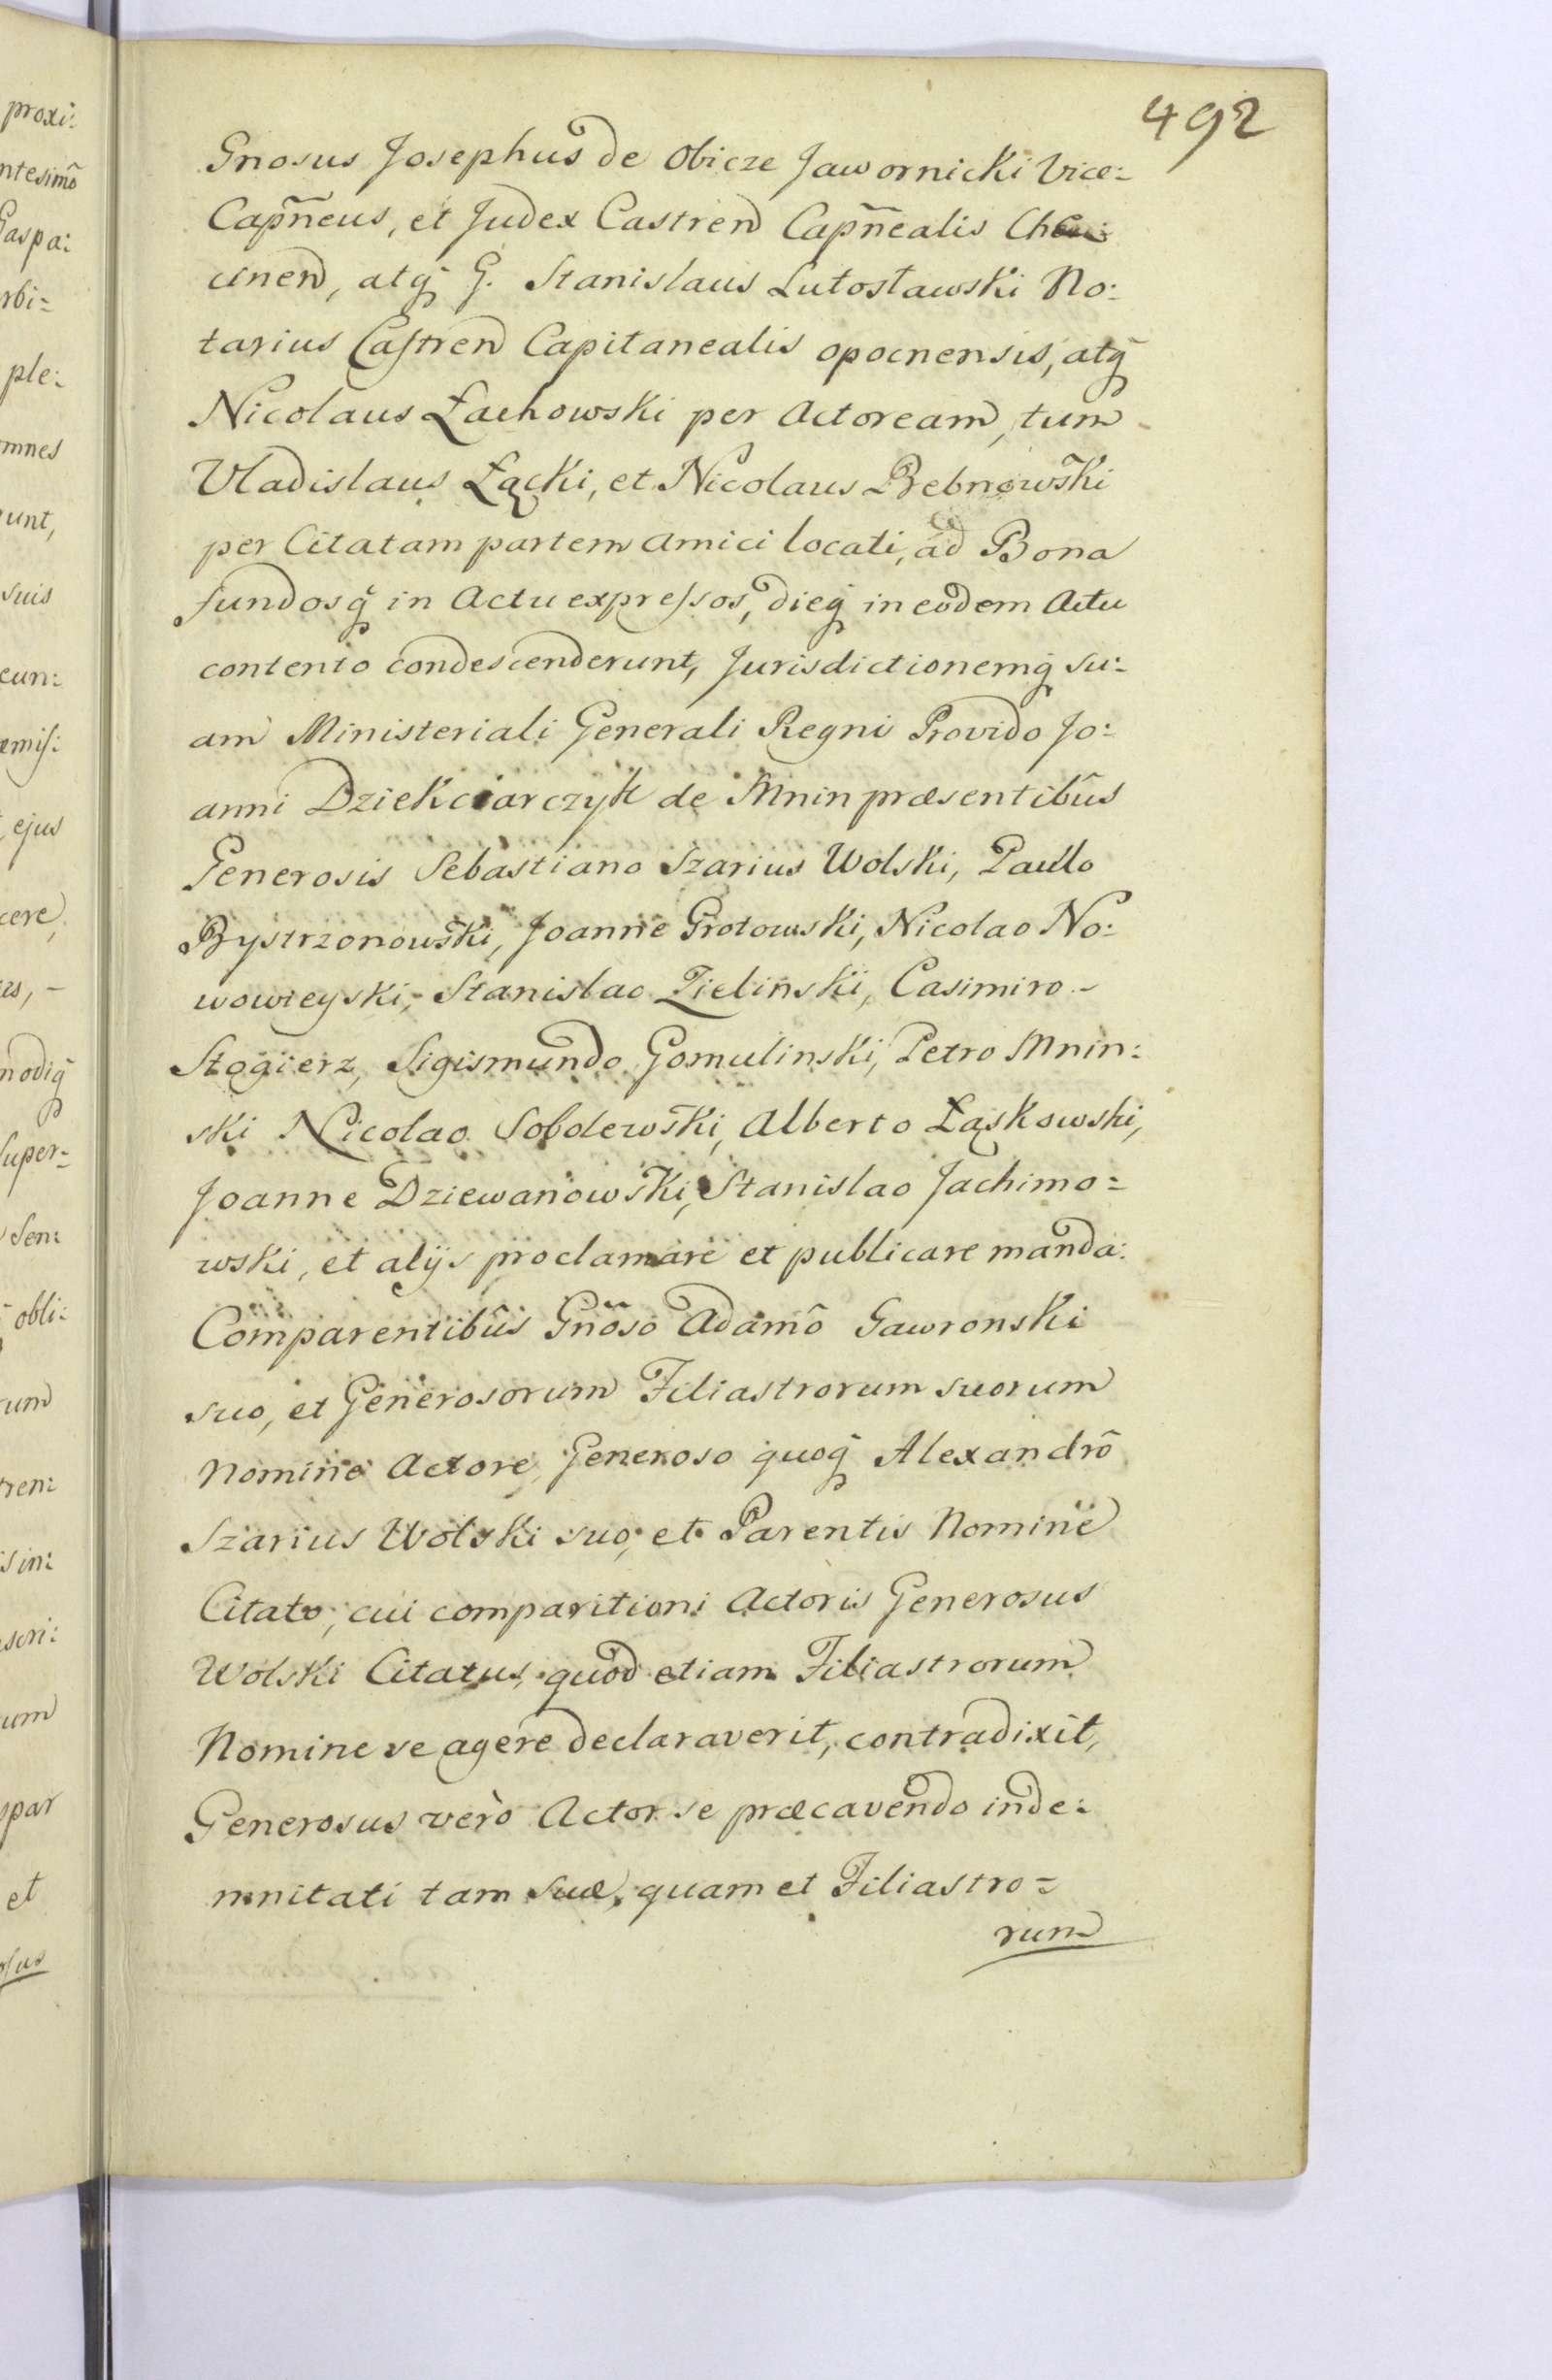 492
Gnosus Josephus de Obicze Jawornicki Vice:
Capñeus, et Judex Castren Capñealis
cinen, atq̃ G. Stanislaus Lutosławski No:
tarius Castren Capitanealis opocnensis, atq̃
Nicolaus Łachowski per Actoream, tum
Vladislaus Łącki, et Nicolaus Bebnowski
per Citatam partem amici locati, ad Bona
fundosq̃ in Actu expressos, dieq̃ in eodem Actu
contento condescenderunt, Jurisdictionemq̃ su:
am Ministeriali Generali Regni Provido Jo:
anni Dziekciarczyk de Mnin præsentibûs
Generosis Sebastiano Szarius Wolski, Paulo
Bystrzonowski, Joanne Grotowski, Nicolao No:
wowieyski, Stanislao Zielinski, Casimiro -
Stogierz, Sigismundo Gomulinski, Petro Mnin:
ski Nicolao Sobolewski, Alberto Łąskowski,
Joanne Dziewanowski, Stanislao Jachimo=
wski, et alijs proclamare et publicare manda:
Comparentibûs Gñoso Adamô Gawronski
suo, et Generosorum Filiastrorum suorum
Nomine Actore, Generoso quoq̃ Alexandrô
Szarius Wolski suo, et Parentis Nomine
Citato, cui comparitioni Actoris Generosus
Wolski Citatus, quod etiam Filiastrorum
Nomine se agere declaraverit, contradixit,
Generosus verò Actor se præcavendo inde:
mnitati tam suæ, quam et Filiastro=
rum
proxi:
ntesimô
Gaspa:
rbi=
ple:
omnes
unt,
suis
cun:
emis:
ejus
cere,
modiq̃
Super=
Sen:
obli:
rum
tren:
sin:
scri:
um
spar
et